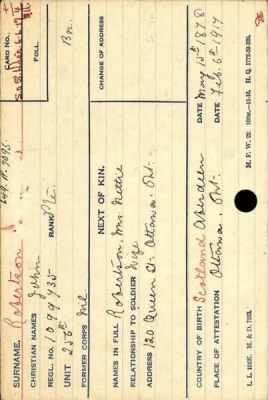 649-R-7095
SURNAME. Robertson
CARD NO.
CHRISTIAN NAMES John
FOLL.
REGL. NO. 1099135 RANK Pte.
UNIT 256th Bn.
FORMER CORPS Nil
NEXT OF KIN.
CHANGE OF ADDRESS
NAMES IN FULL Robertson, Mrs. Nettie
RELATIONSHIP TO SOLDIER Wife
ADDRESS 120 Queen St. Ottawa. Ont.
COUNTRY OF BIRTH Scotland Aberdeen DATE May 15th 1878
PLACE OF ATTESTATION Ottawa. Ont. DATE Feb. 6th 1917
L. L. M. & D. M. F. W. 22. H. Q. 1772-39-339.